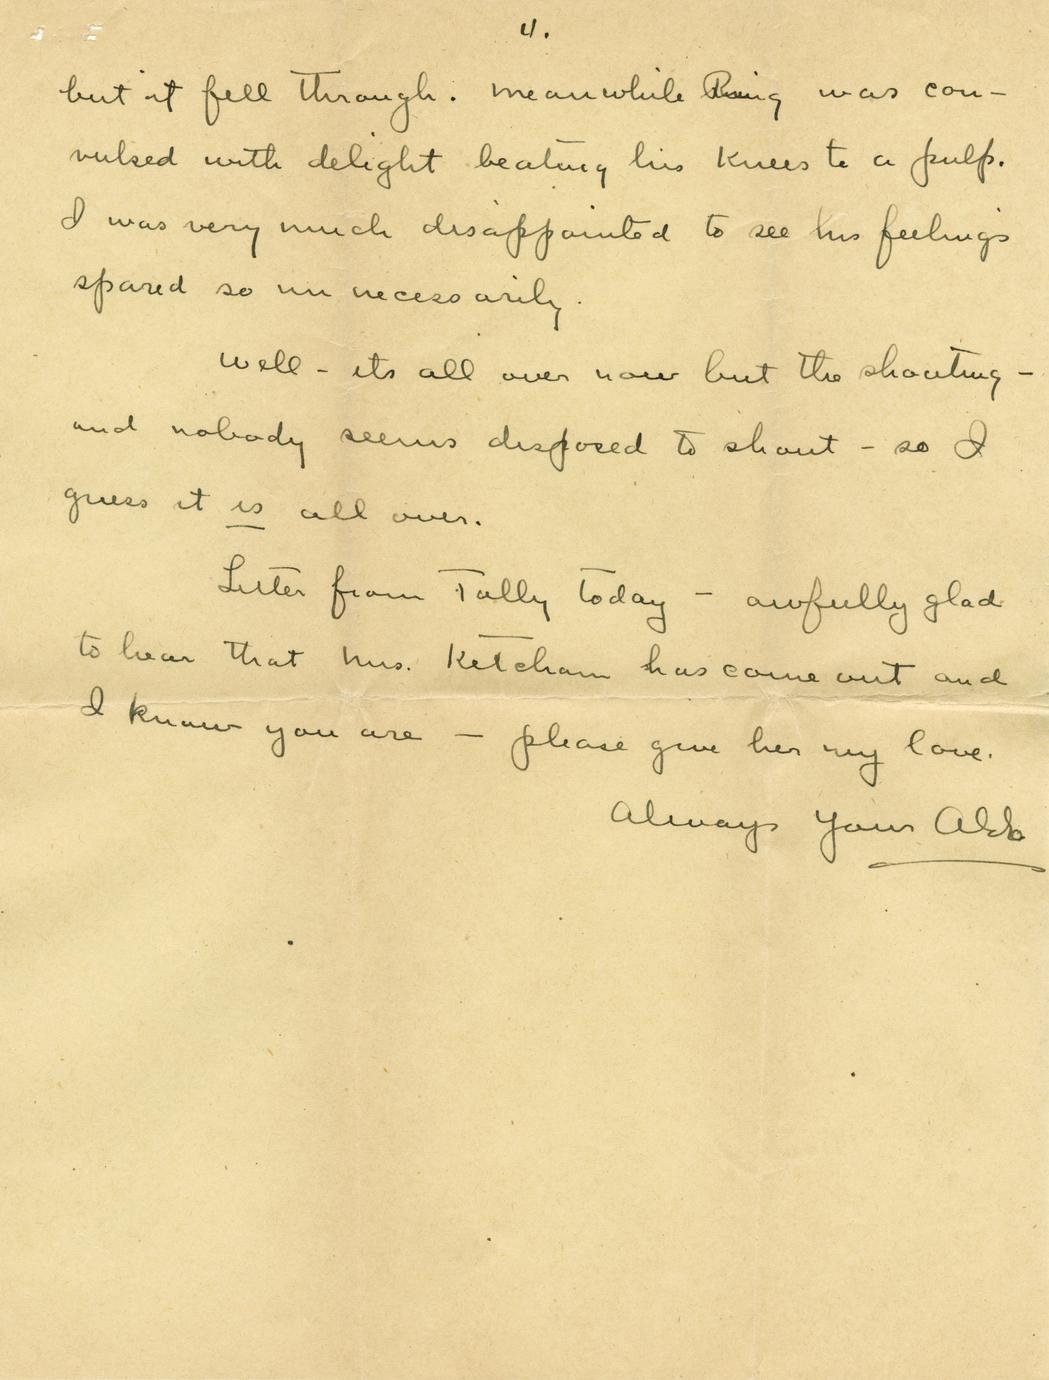 4.
but it fell through. Meanwhile Ring was con-
vulsed with delight beating his knees to a pulp.
I was very much disappointed to see his feelings
spared so un necessarily.
Well - its all over now but the shouting -
and nobody seems disposed to shout - so I
guess it is all over.
Letter from Tully today - awfully glad
to hear that Mrs. Ketcham has come out and
I know you are - please give her my love.
Always Your Aldo